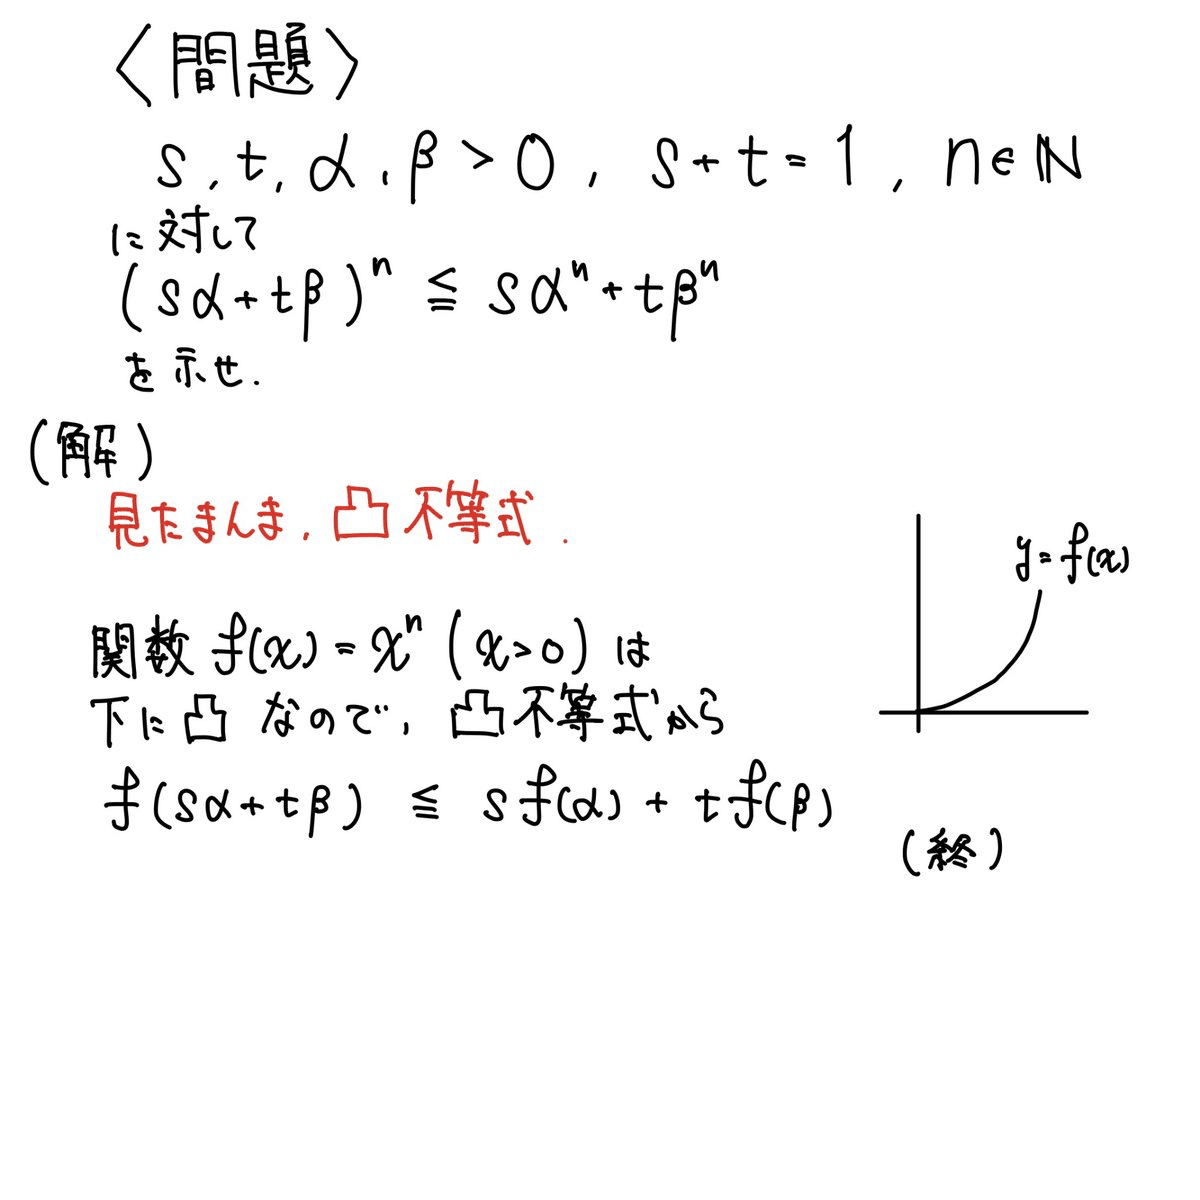 〈問題〉
s, t, α, β > 0, s + t = 1, n ∈ ℕ
に対して
(sα + tβ)ⁿ ≦ sαⁿ + tβⁿ
を示せ.
(解)
見たまんま, 凸不等式.
y = f(x)
関数 f(x) = xⁿ (x > 0) は
下に凸 なので, 凸不等式から
f(sα + tβ) ≦ sf(α) + tf(β)
(終)